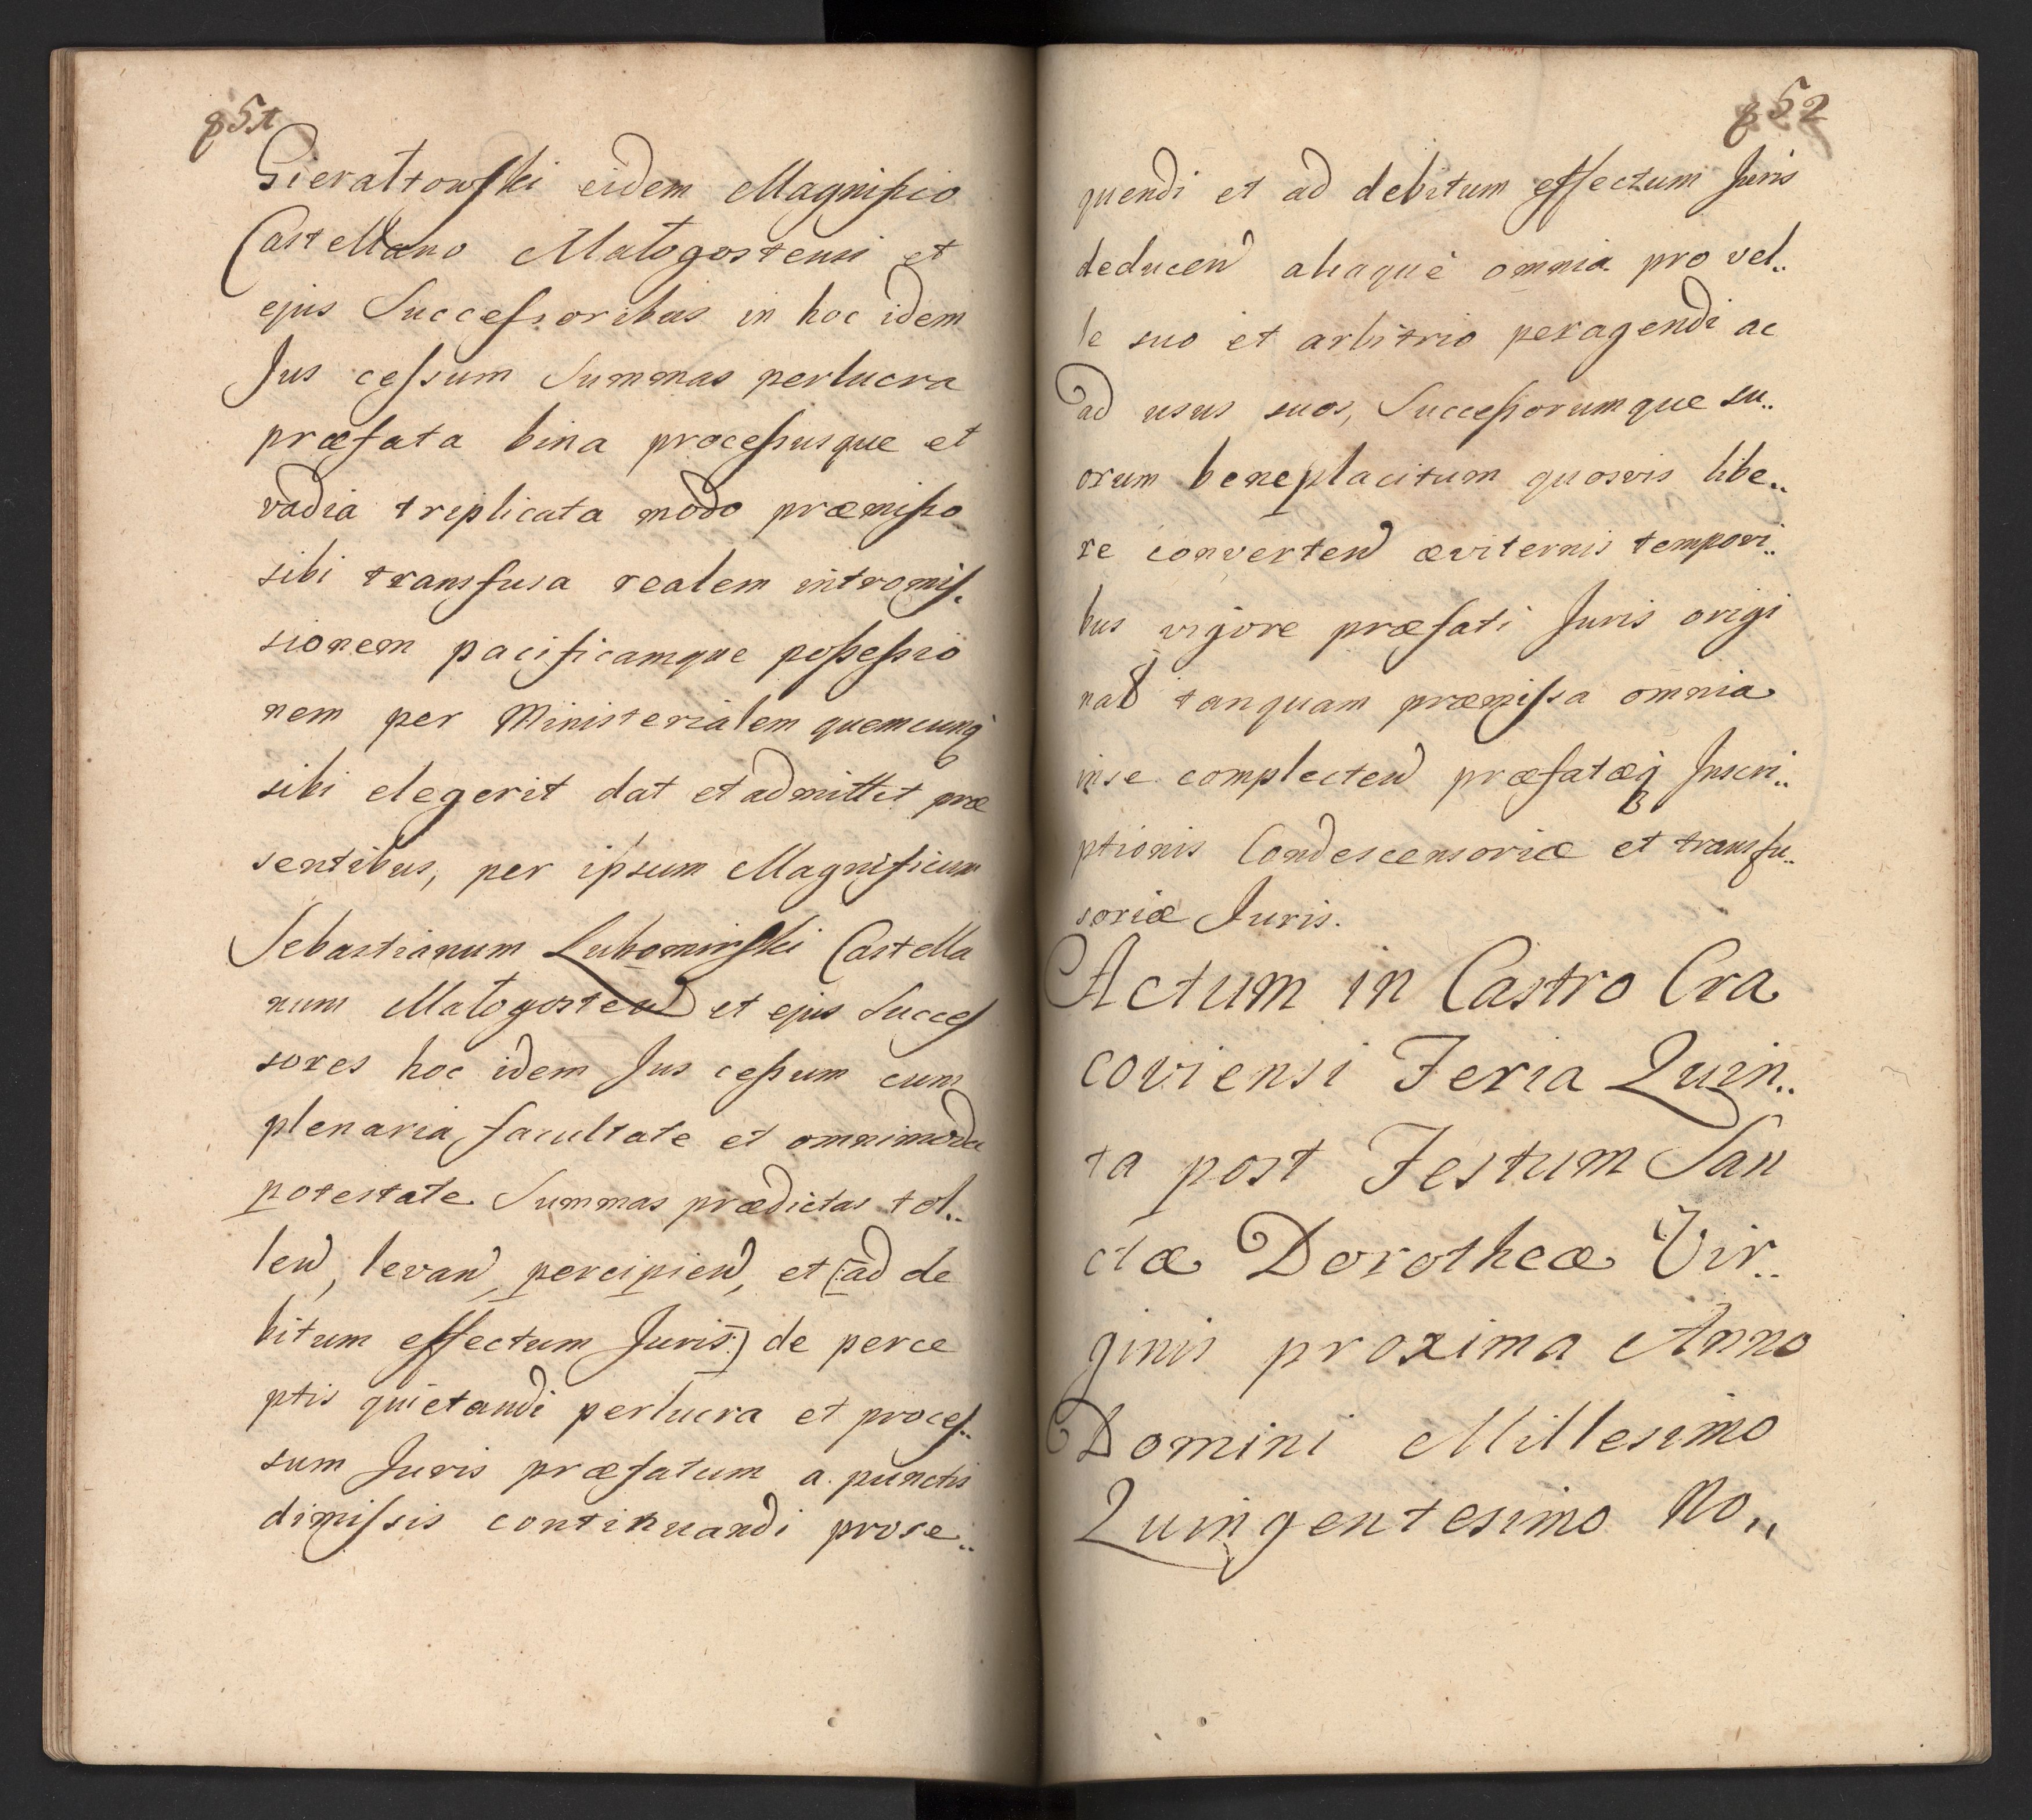 851
Gierałtowski eidem Magnifico
Castellano Małogostensi et
ejus Successoribus in hoc idem
Jus cessum Summas perlucra
præfata bina processusque et
vadia triplicata modo præmisso
sibi transfusa realem intromis-
sionem pacificamque possessio
nem per Ministerialem quemcunq
sibi elegerit dat et admittet præ
sentibus, per ipsum Magnificum
Sebastianum Lubomirski Castella
num Małogosten et ejus Succes
sores hoc idem Jus cessum cum
plenaria facultate et omnimoda
potestate Summas prædictas tol..
len, levan, percipien, et (:ad de
bitum effectum Juris:) de perce
ptis quietandi perlucra et proces..
sum Juris præfatum a punctis
dimissis continuandi prose..
852
quendi et ad debitum effectum Juris
deducen aliaque omnia pro vel..
le suo et arbitrio peragendi ac
ad usus suos, Successorumque su..
orum beneplacitum quosvis libe..
re converten æviternis tempori..
bus vigore præfati Juris origi
nal tanquam præmissa omnia
in se complecten præfatæq Inscri..
ptionis Condescensoriæ et transfu..
soriæ Juris.
Actum in Castro Cra
coviensi Feria Quin..
ta post Festum San
ctæ Dorotheæ Vir..
ginis proxima Anno
Domini Millesimo
Quingentesimo No,,